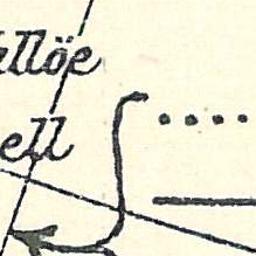 llöe
ell